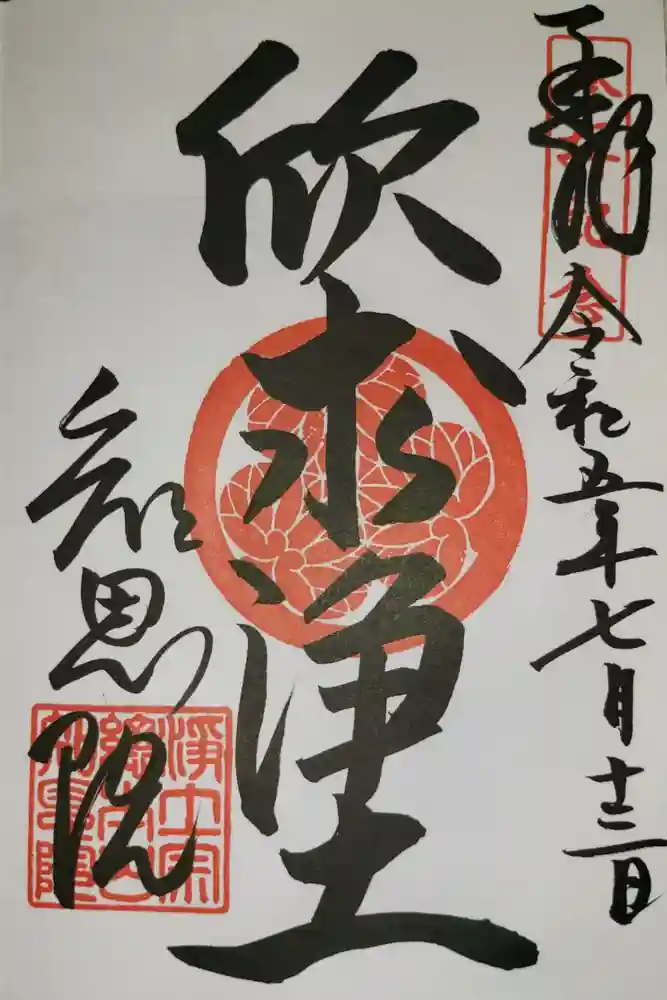 奉拝 令和五年七月十二日
欣求浄土
知恩院
淨土宗
總本山
知恩院